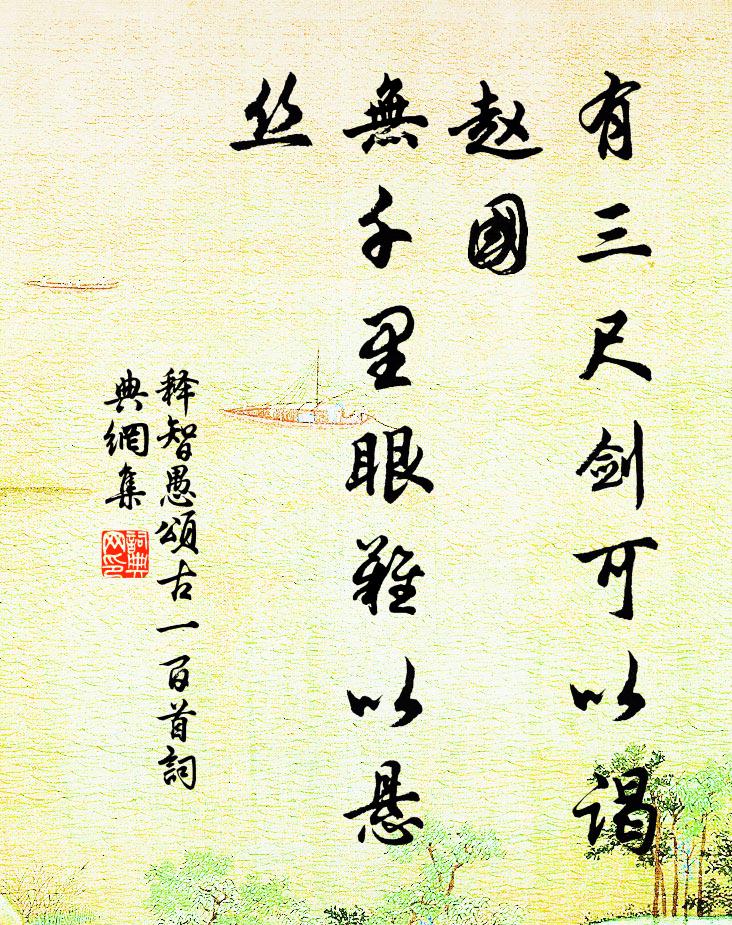 有三尺剑可以谒
赵國
無千里眼難以悬
丝
释智愚頌古一百首詞
典網集
詞典
网印